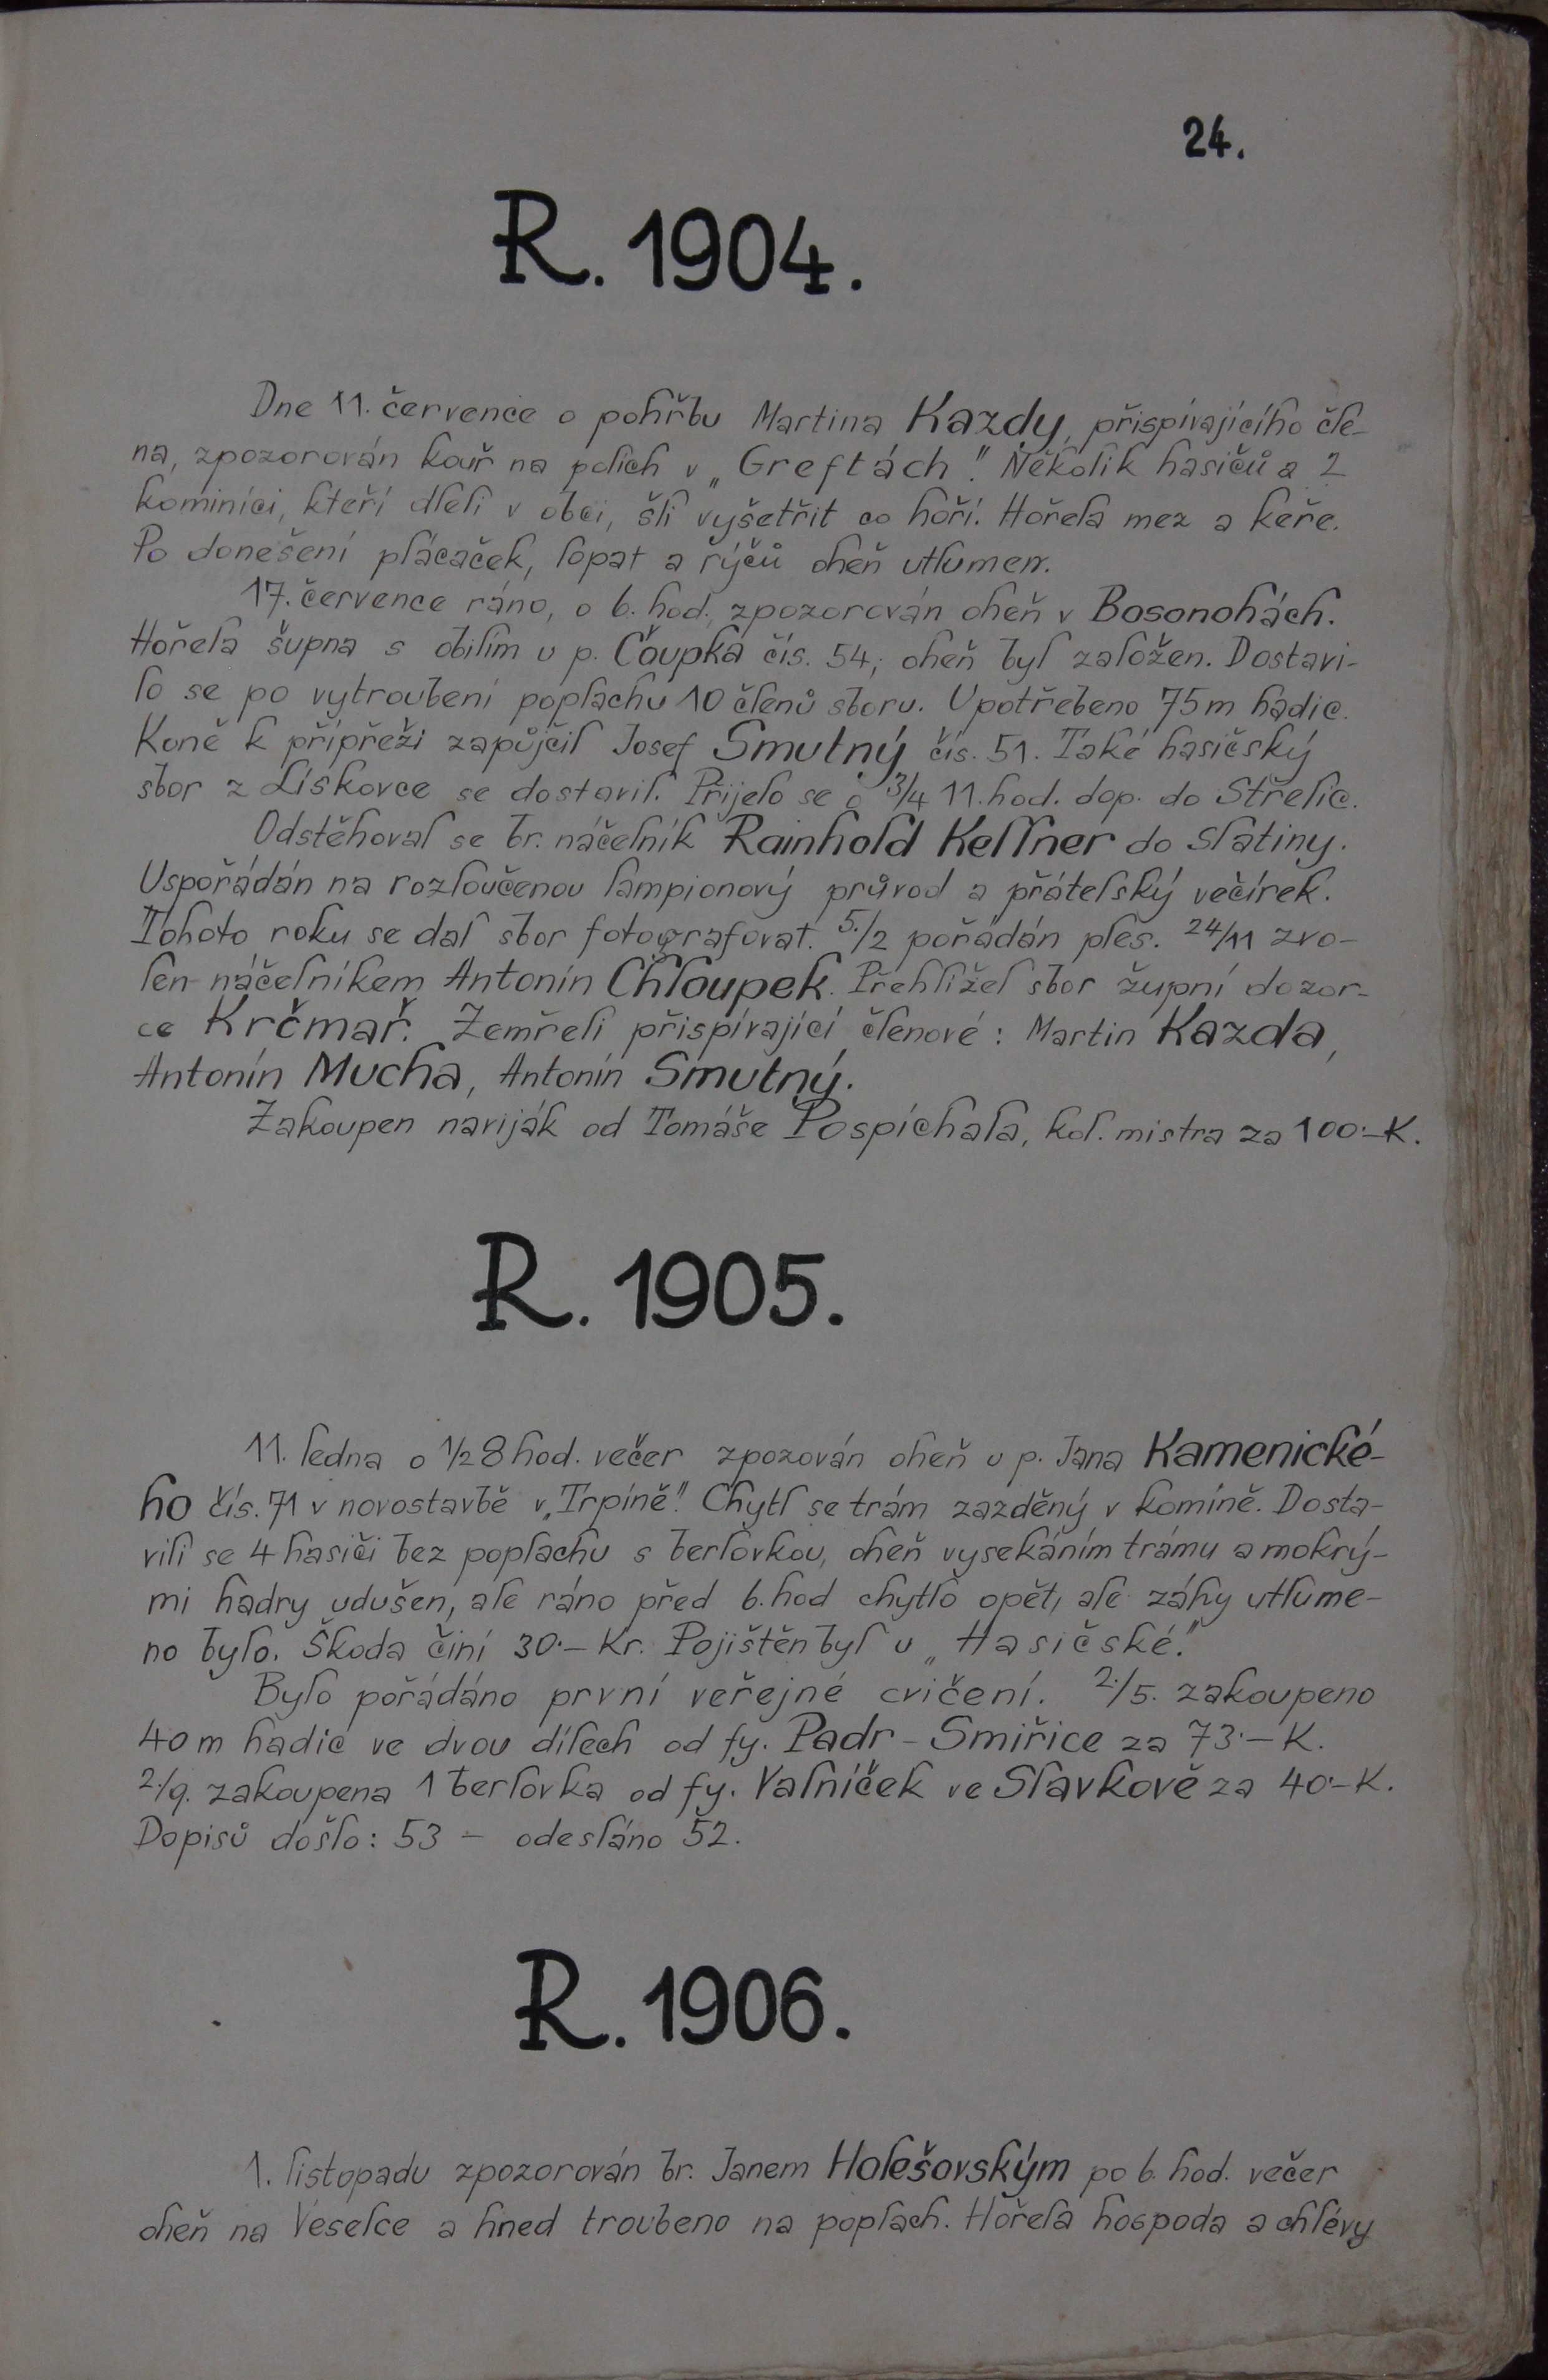 24.
R. 1904.
Dne 11. července o pohřbu Martina Kazdy, přispívajícího čle-
na, zpozorován kouř na polích v „Greftách". Několik hasičů a 2
kominíci, kteří dleli v obci, šli vyšetřit co hoří. Hořela mez a keře.
Po donešení plácaček, lopat a rýčů oheň utlumen.
17. července ráno, o 6. hod., zpozorován oheň v Bosonohách.
Hořela šupna s obilím u p. Čoupka čís. 54, oheň byl založen. Dostavi-
lo se po vytroubení poplachu 10 členů sboru. Upotřebeno 75 m hadic.
Koně k přípřeži zapůjčil Josef Smutný čís. 51. Také hasičský
sbor z Lískovce se dostavil. Přijelo se o 3/4 11. hod. dop. do Střelic.
Odstěhoval se br. náčelník Rainhold Kellner do Slatiny.
Uspořádán na rozloučenou lampionový průvod a přátelský večírek.
Tohoto roku se dal sbor fotografovat. 5./2 pořádán ples. 24/11 zvo-
len náčelníkem Antonín Chloupek. Přehlížel sbor župní dozor-
ce Krčmař. Zemřeli přispívající členové: Martin Kazda,
Antonín Mucha, Antonín Smutný.
Zakoupen naviják od Tomáše Pospíchala, kol. mistra za 100·-K.
R. 1905.
11. ledna o 1/2 8 hod. večer zpozován oheň u p. Jana Kamenické-
ho čís. 71 v novostavbě v „Trpíně". Chytl se trám zazděný v komíně. Dosta-
vili se 4 hasiči bez poplachu s berlovkou, oheň vysekáním trámu a mokrý-
mi hadry udušen, ale ráno před 6. hod chytlo opět, ale záhy utlume-
no bylo. Škoda činí 30·- Kr. Pojištěn byl u „Hasičské".
Bylo pořádáno první veřejné cvičení. 2./5. zakoupeno
40 m hadic ve dvou dílech od fy. Padr - Smiřice za 73·- K.
2./9. zakoupena 1 berlovka od fy. Valníček ve Slavkově za 40·-K.
Dopisů došlo: 53 - odesláno 52.
R. 1906.
1. listopadu zpozorován br. Janem Holešovským po 6. hod. večer
oheň na Veselce a hned troubeno na poplach. Hořela hospoda a chlévy